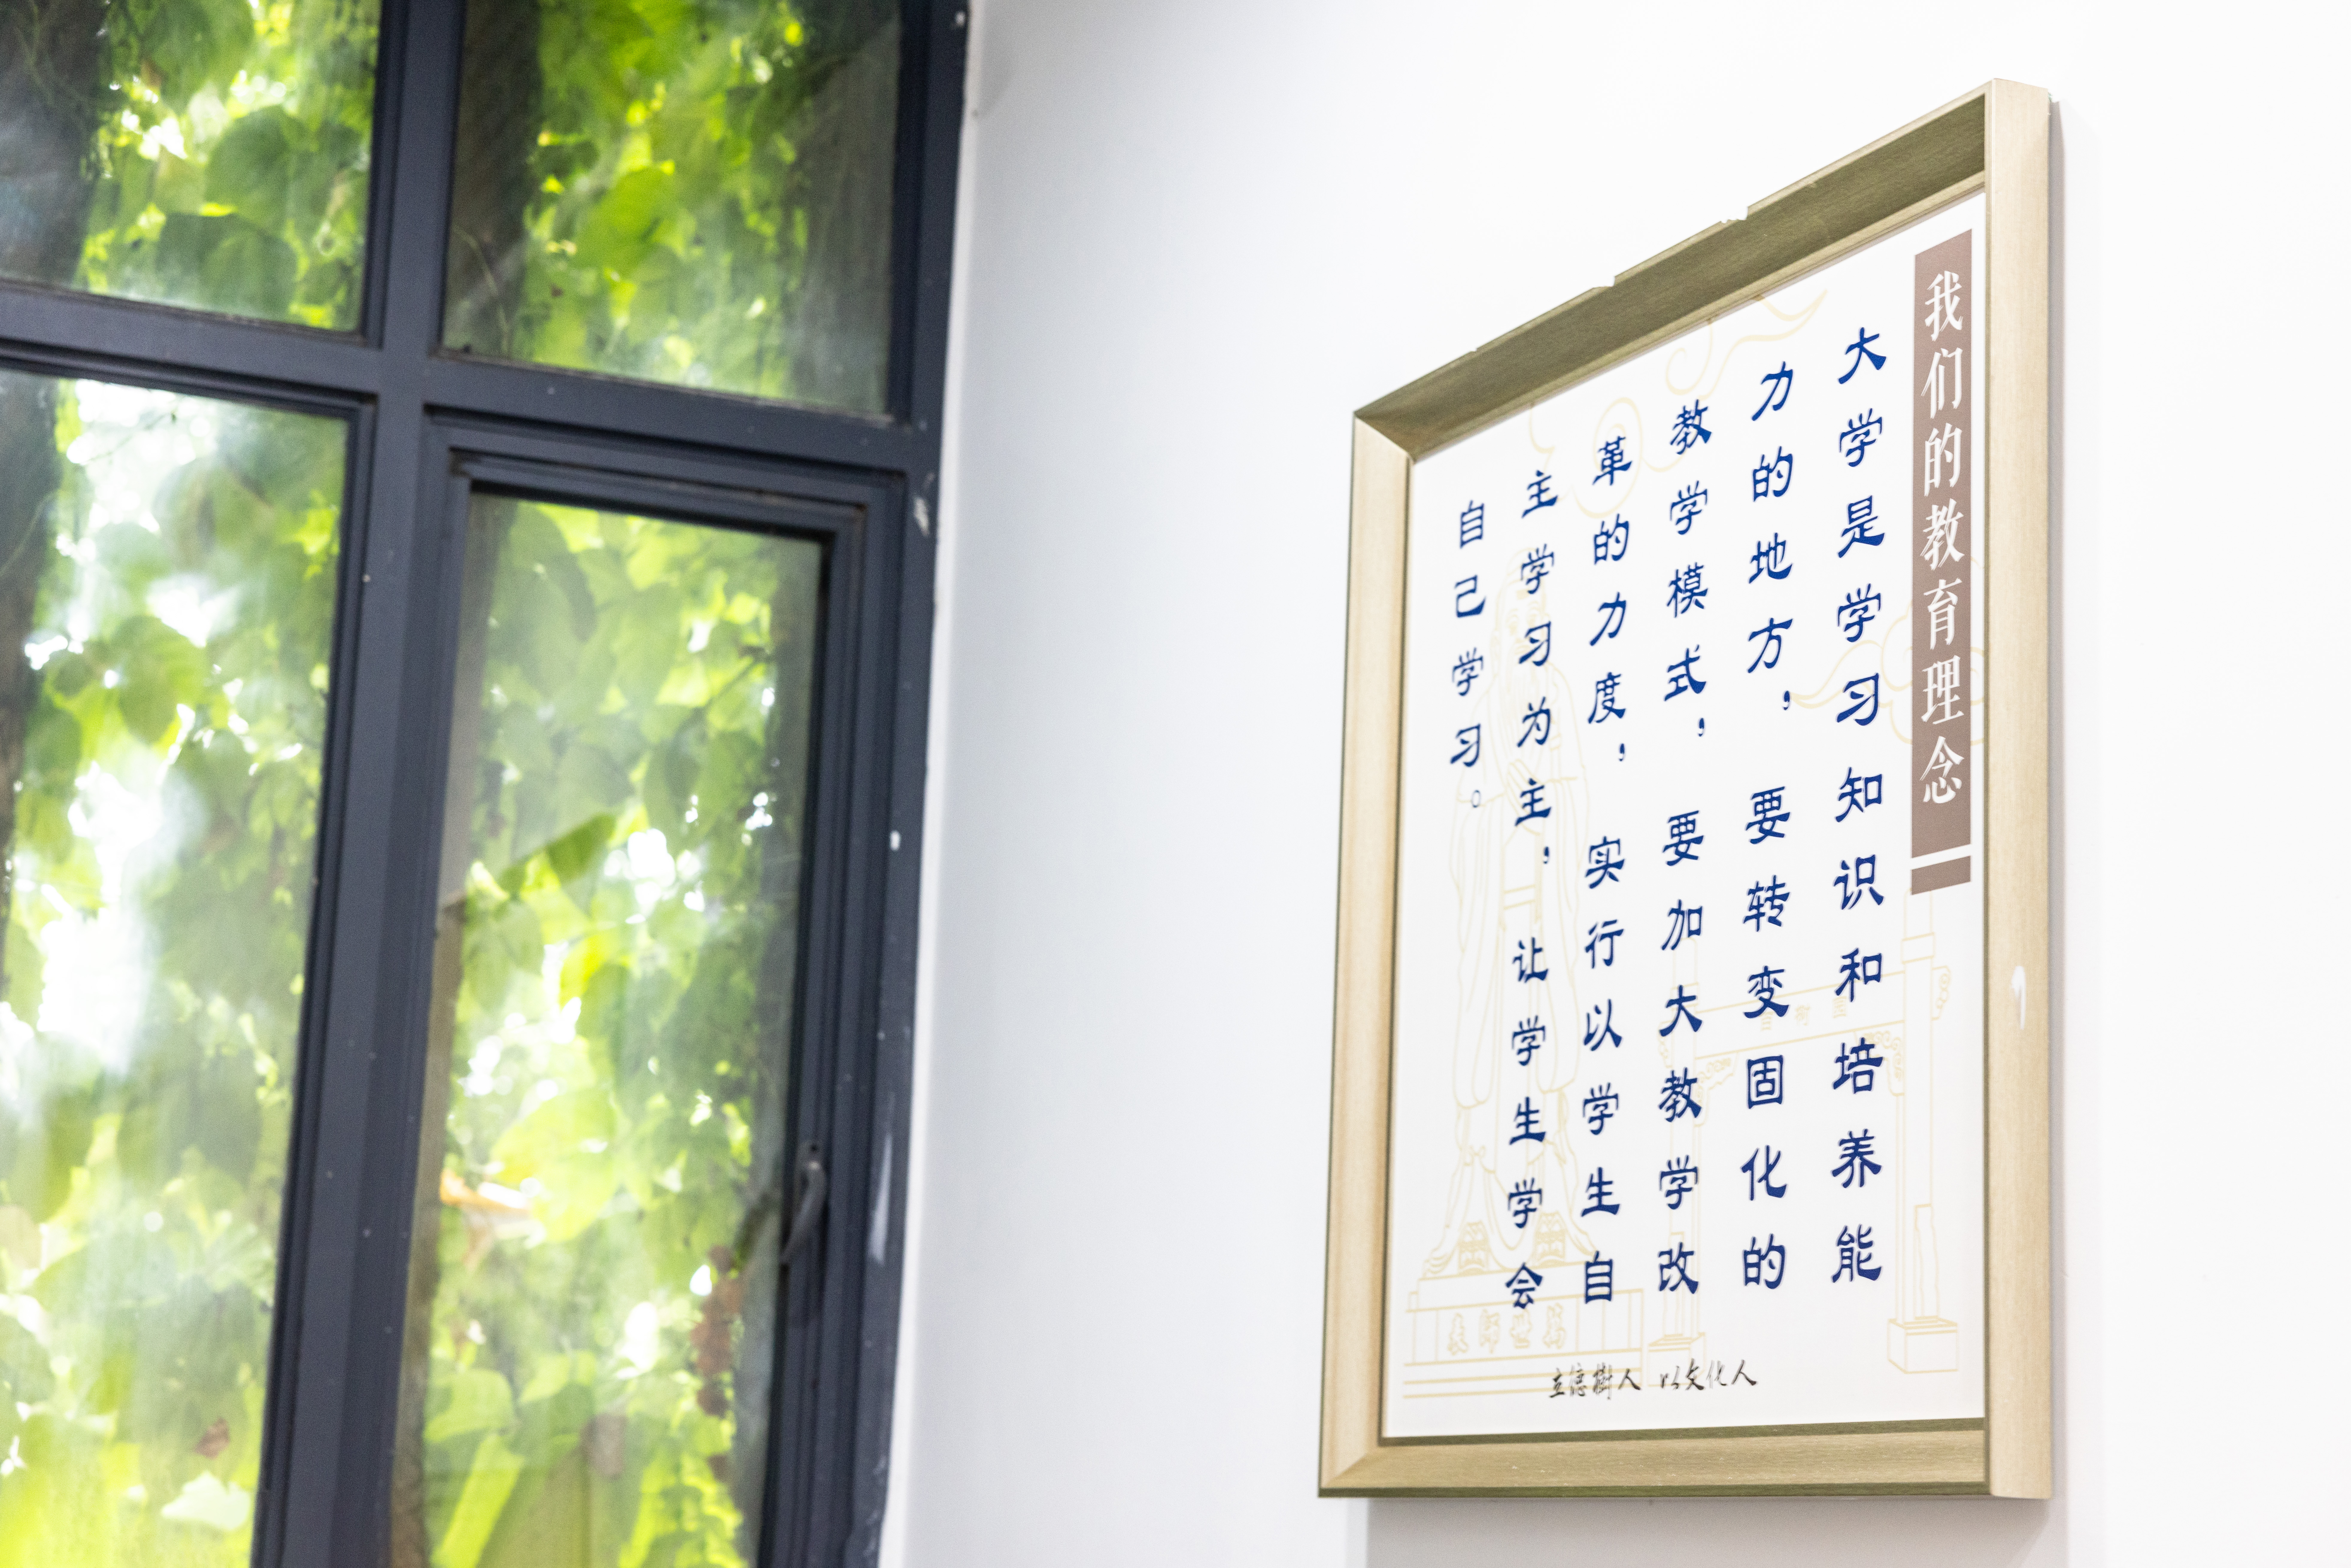 我们的教育理念
大学是学习知识和培养能
力的地方，要转变固化的
教学模式，要加大教学改
革的力度，实行以学生自
主学习为主，让学生学会
自己学习。
立德樹人 以文化人
萬世師表